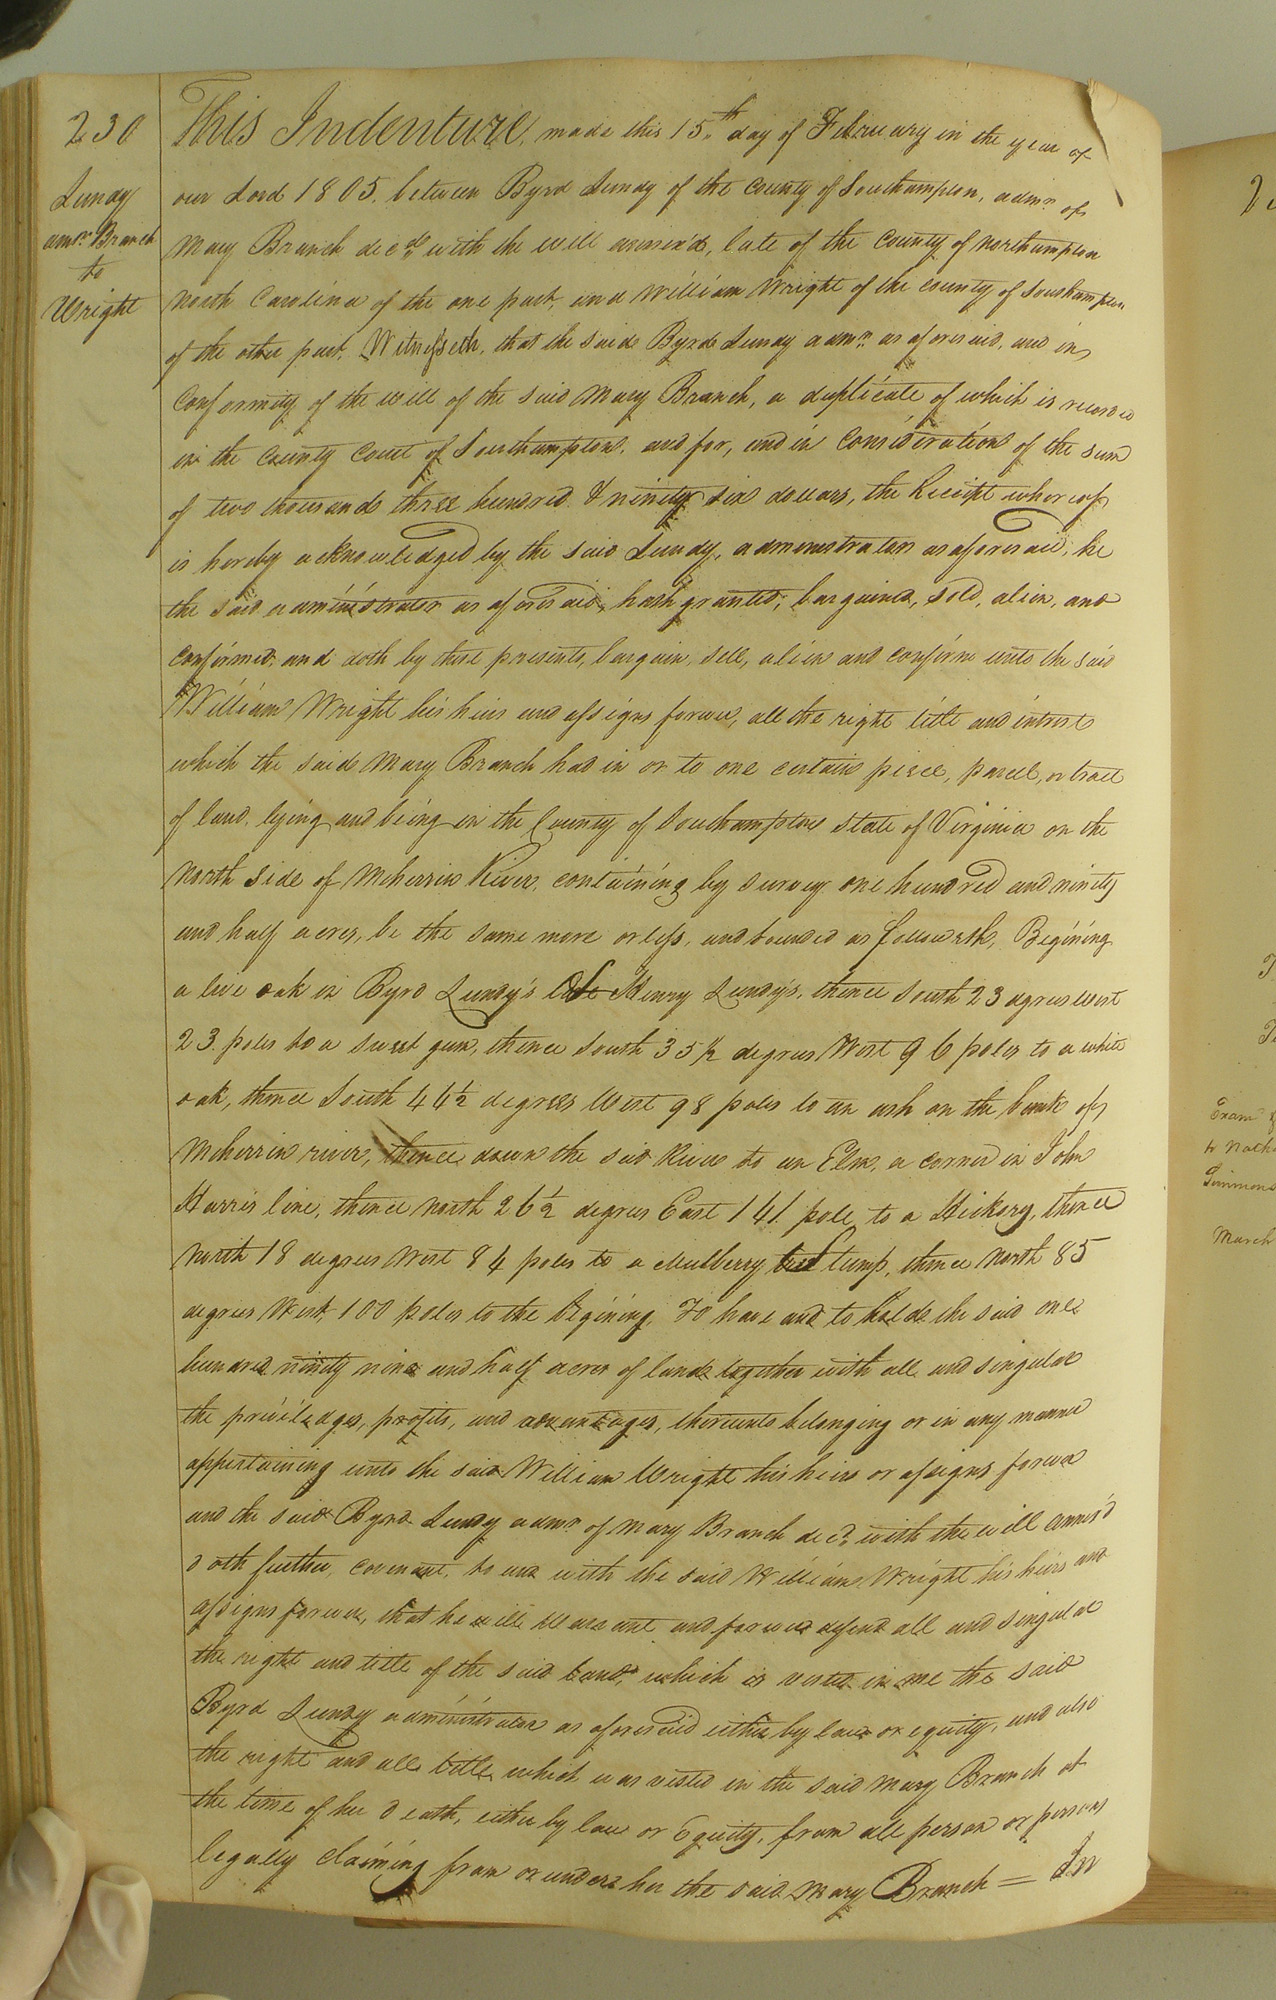 230
Lundy
amr. Branch
to
Wright
This Indenture, made this 15th day of February in the year of
our Lord 1805, between Byrd Lundy of the county of Southampton, admr. of
Mary Branch decd. with the will annex'd, late of the county of Northampton
North Carolina of the one part, and William Wright of the county of Southampton
of the other part, Witnesseth, that the said Byrd Lundy admr. as aforesaid, and in
Conformity of the will of the said Mary Branch, a duplicate of which is recorded
in the County Court of Southampton, and for, and in Consideration of the sum
of two thousand three hundred & ninety six dollars, the Receipt whereof
is hereby acknowledged by the said Lundy, administrator as aforesaid, he
the said administrator as aforesaid, hath granted, bargained, sold, alien, and
confirmed, and doth by these presents, bargain, sell, alien and confirm unto the said
William Wright his heirs and assigns forever, all the right title and intrest
which the said Mary Branch had in or to one certain piece, parcel, or tract
of land, lying and being in the County of Southampton state of Virginia on the
North side of Meherrin River, containing by survey one hundred and ninety
and half acres, be the same more or less, and bounded as followeth, Begining
a live oak in Byrd Lundy's Henry Lundy's, thence South 23 degrees West
23 poles to a sweet gum, thence South 35 ½ degrees West 96 poles to a white
oak, thence South 44½ degrees West 98 poles to an ash on the bank of
Meherrin river, thence down the said River to an Elm, a corner in John
Harris line, thence North 26½ degrees East 141 pole to a Hickory, thence
North 18 degrees West 84 poles to a Mulberry Stump, thence North 85
degrees West, 100 poles to the begining, To have and to hold the said one
hundred ninety nine and half acres of land together with all and singular
the priviledges, profits, and advantages, thereunto belonging or in any manner
appertaining unto the said William Wright his heirs or assigns forever
and the said Byrd Lundy admr of Mary Branch decd. with the will annex'd
doth further, covenant, to and with the said William Wright his heirs and
assigns forever, that he will Warrant and forever defend all and singular
the right and title of the said land, which is vested in me the said
Byrd Lundy administrator as aforesaid either by law or equity, and also
the right and all title which was vested in the said Mary Branch at
the time of her death, either by law or Equity, from all person or persons
legally claiming from or under her the said Mary Branch = In
Exam
to
Simmons
March